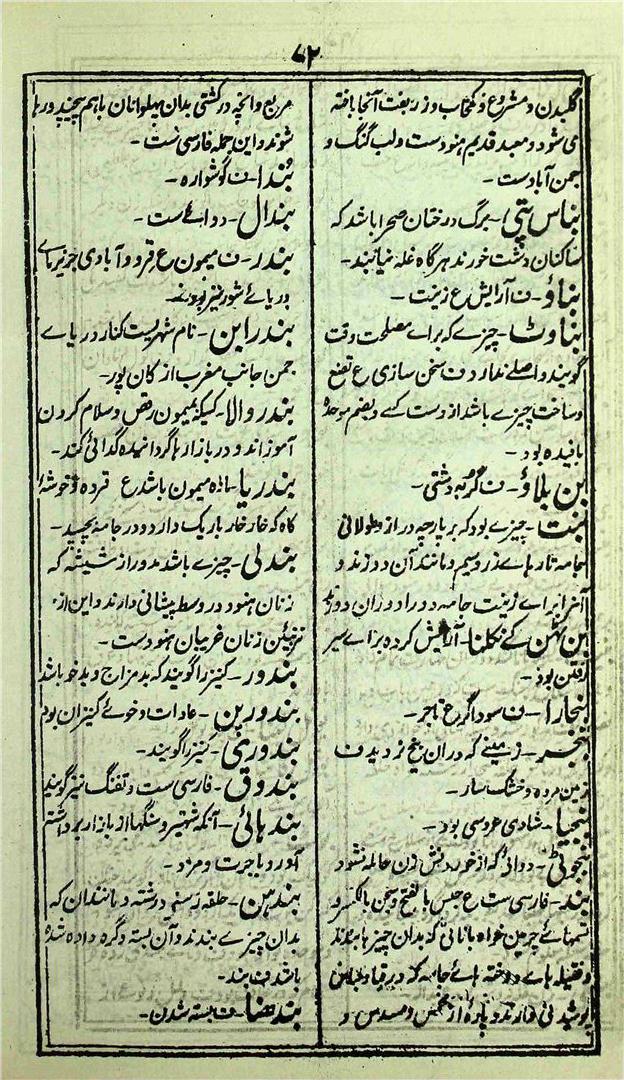 ۷۲
گلبدن و مشروع و کمخاب و زربفت آنجا بافته
می شود و معبد قدیم هنودست و لب گنگ و
جمن آبادست -
بناس پتی - برگ درختان صحرا باشد که
ساکنان دشت خورند هرگاه غله نیابند -
بناؤ - ف آرایش ع زینت -
بناوٹ - چیزے که براے مصلحت وقت
گویند و اصلے ندارد ف سخن سازی ع تصنع
و ساخت چیزے باشد از دست کسے و بضم موحده
بافیده بود -
بن بلاؤ - ف گربه دشتی -
بنت - چیزے بود که بر پارچه دراز و طولانی
تارهاے زر و سیم و مانند آن دوزند و
آنرا براے زینت جامه دور ادوران دوزند
بن ٹھن کے نکلنا - آرایش کرده براے سیر
رفتن بود -
بنجارا - ف سوداگر ع تاجر -
بنجر - زمینے که دران بیخ نروید ف
زمین مرده و خشک سار -
شادی عروسی بود -
دوائی که از خوردنش زن حامله نشود
بند - فارسی ست ع حبس بالفتح و سجن بالکسر و
تسمهائے چرمین خواه بانانی که بدان چیزها بندند
و فتیله هاے دوخته هائے جامه که در قبا و
پوشیدنی و پاره از مخمس و مسدس و
مربع و انچه در کشتی بدان پهلوانان باهم پیچیده
شوند و این جمله فارسی ست -
بندا - ف گوشواره -
بندال - دوائے ست -
بندر - ف میمون ع قرد و آبادی جزیرهاے
دریائے شور نیز بود -
بندرابن - نام شهریست کنار دریاے
جمن جانب مغرب از کان پور -
بندر والا - کسیکه میمون رقص و سلام کردن
آموزاند و در بازارها گردانیده گدائی کند -
بندریا - ماده میمون باشد ع قرده و خوشه
کاه که خارخار باریک دارد و در جامه بچسپد -
بندلی - چیزے باشد مدور از شیشه که
زنان هنود در وسط پیشانی دارند و این از
تزیین زنان غریبان هنودست -
بندور - کنیز را گویند که بدمزاج و بدخو باشد
بندورپن - عادات و خوئے کنیزان بود
بندوری - کنیز را گویند -
بندوق - فارسی ست و تفنگ نیز گویند
بندهانی - آنکه شهتیر و سنگها از بازار برداشته
آورد با جرت و مزد -
بندهن - حلقه رشته و مانند آن که
بدان چیزے بندند و آن بسته و گره داده شده
باشد ف بند -
بندهنا - ف بسته شدن -